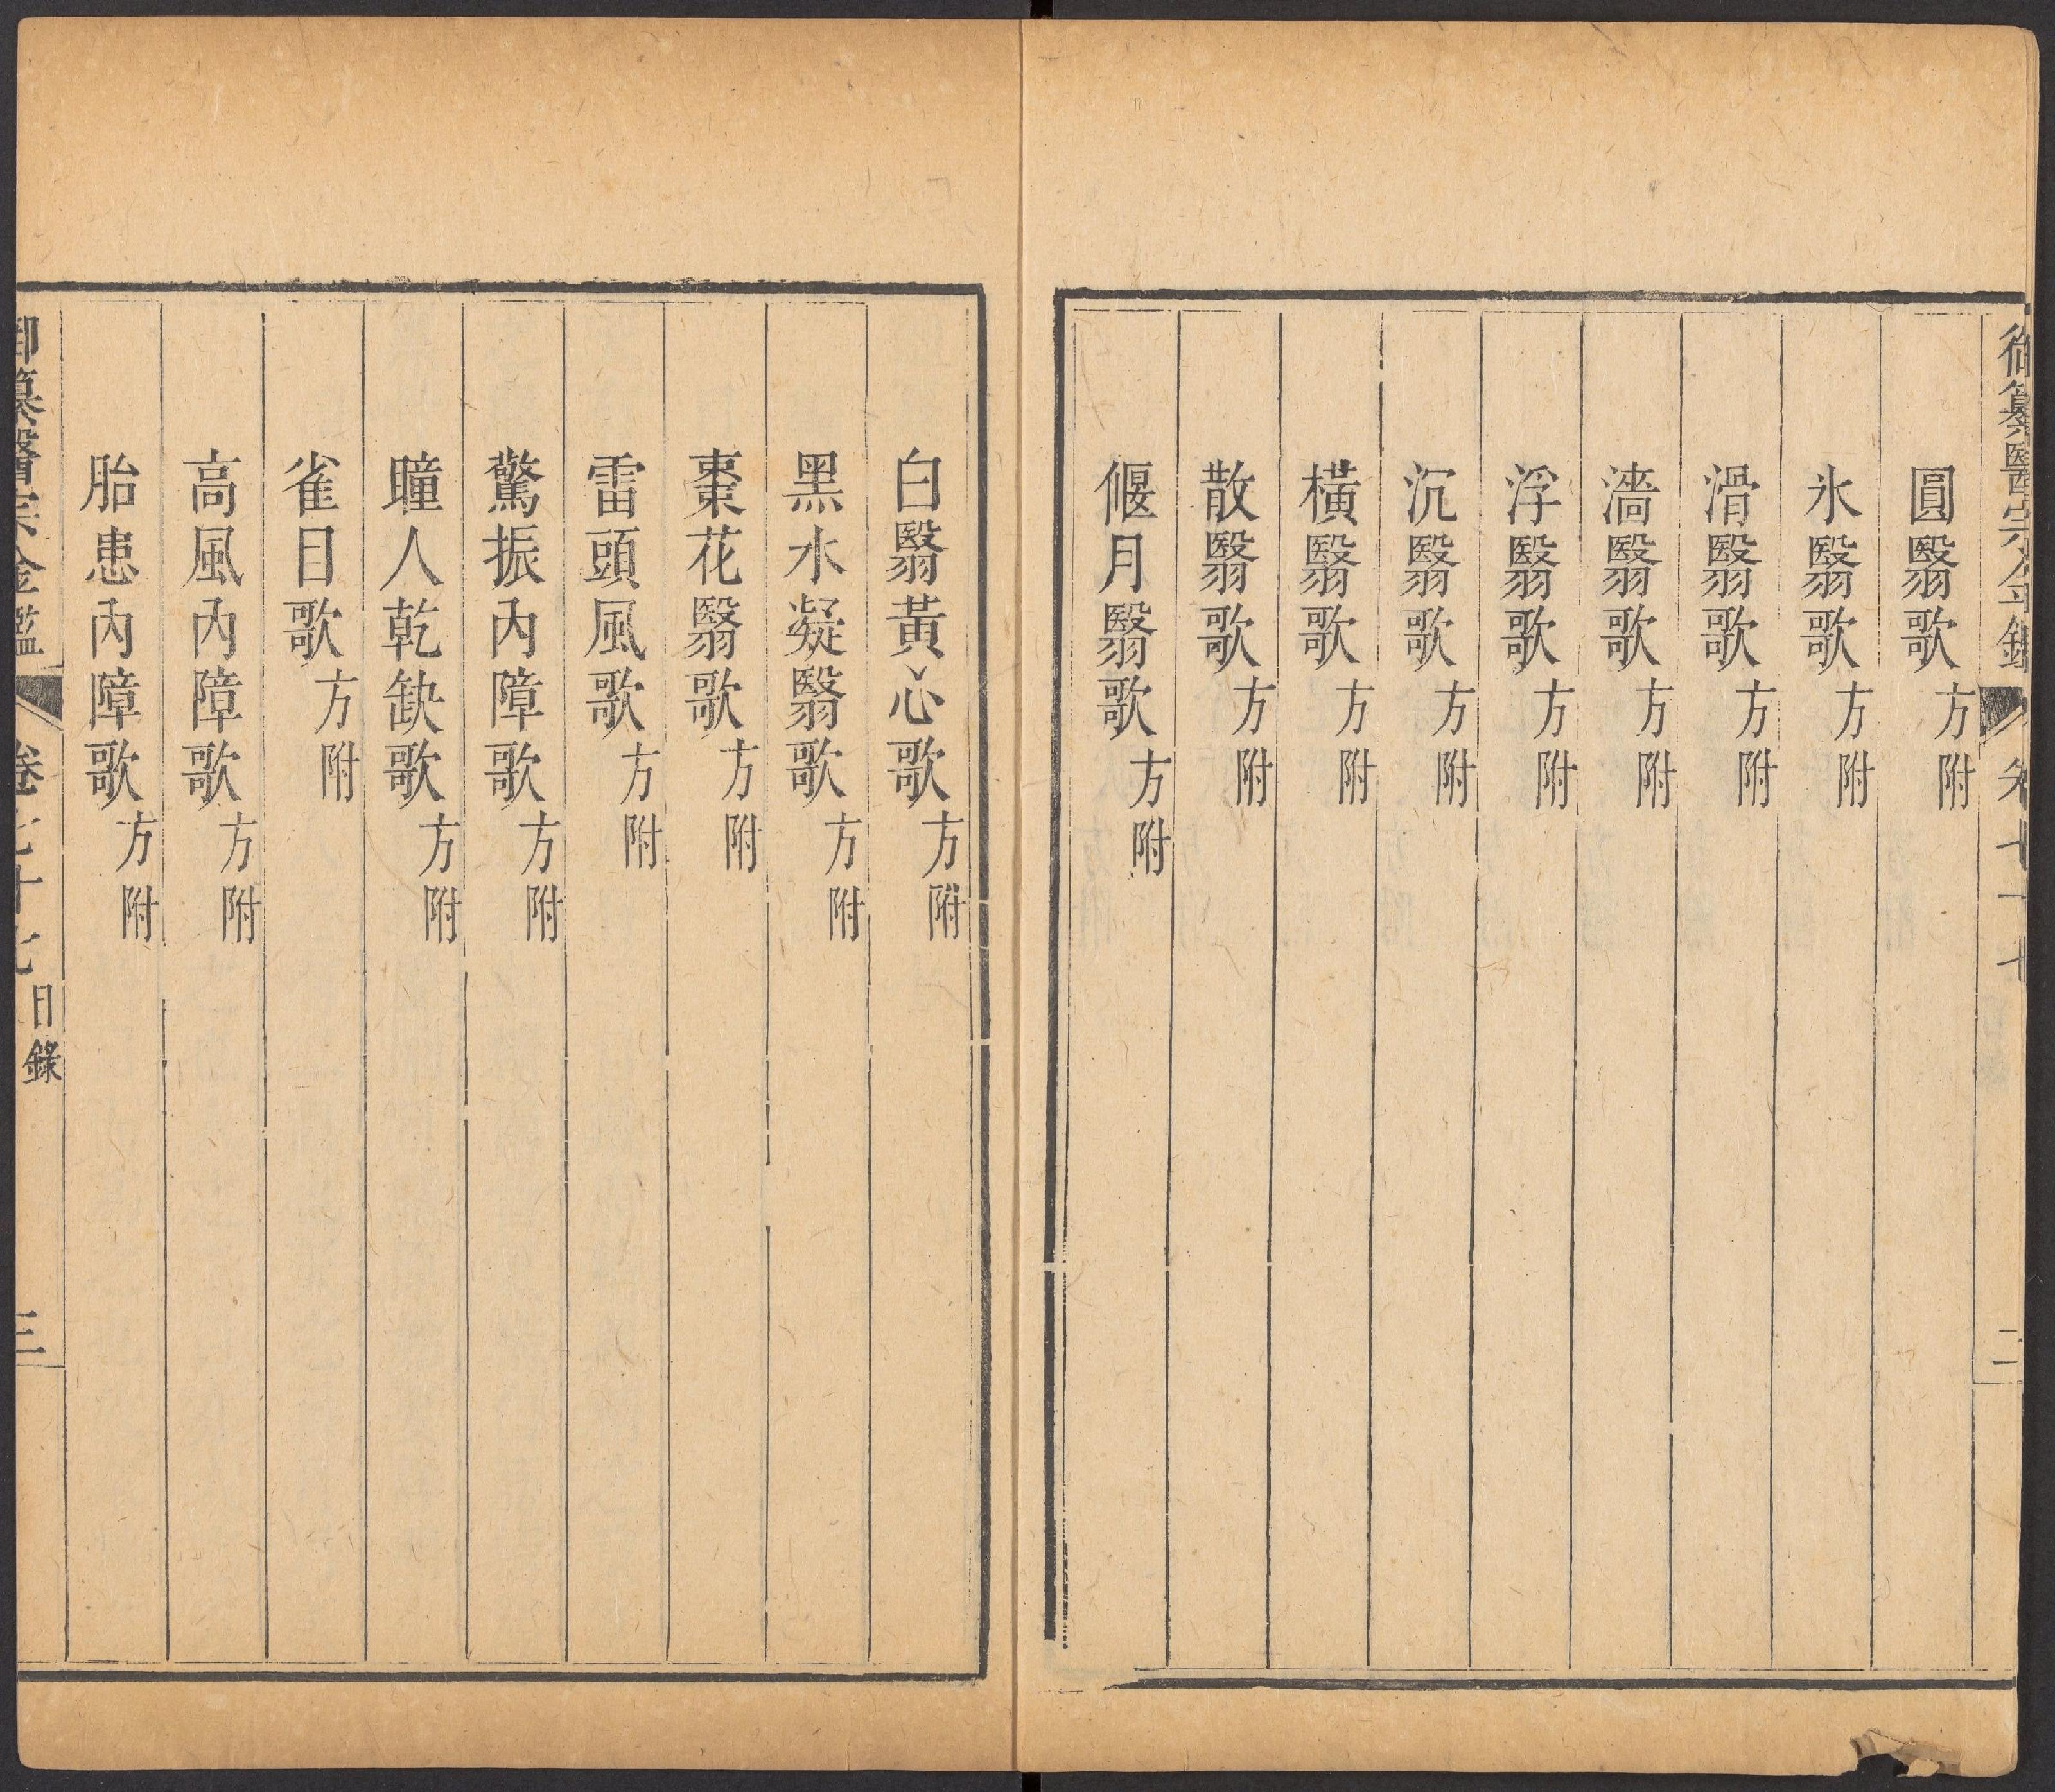 御纂醫宗金鑑 卷七十七 二
圓翳歌方附
氷翳歌方附
滑翳歌方附
濇翳歌方附
浮翳歌方附
沉翳歌方附
橫翳歌方附
散翳歌方附
偃月翳歌方附
白翳黃心歌方附
黑水凝翳歌方附
棗花翳歌方附
雷頭風歌方附
驚振內障歌方附
瞳人乾缺歌方附
雀目歌方附
高風內障歌方附
胎患內障歌方附
御纂醫宗金鑑 卷七十七目錄 三